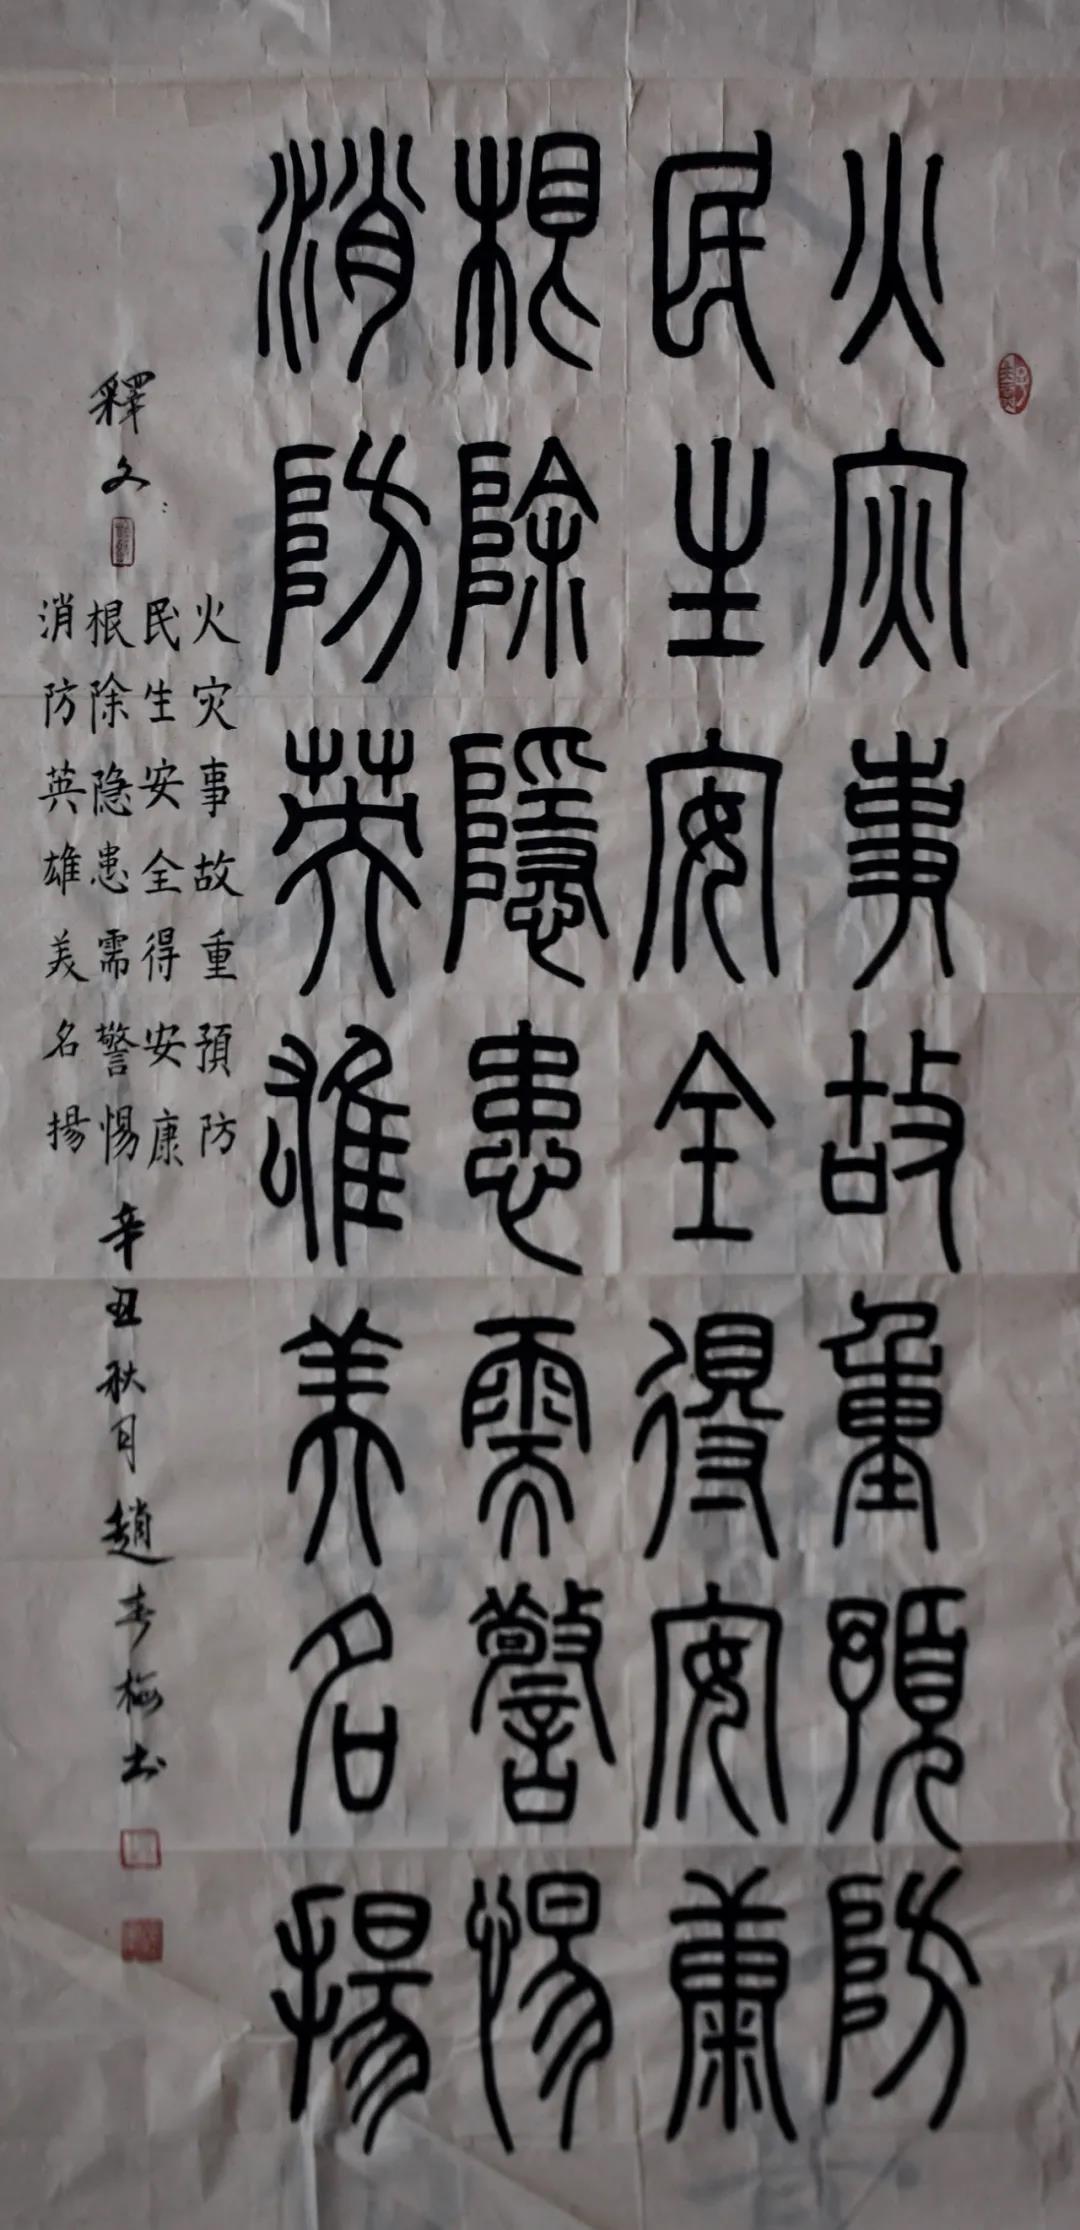 火灾事故重預防
民生安全得安康
根除隱患需警惕
消防英雄美名揚
釋文：
火灾事故重預防
民生安全得安康
根除隐患需警惕
消防英雄美名揚
辛丑秋月趙春梅书